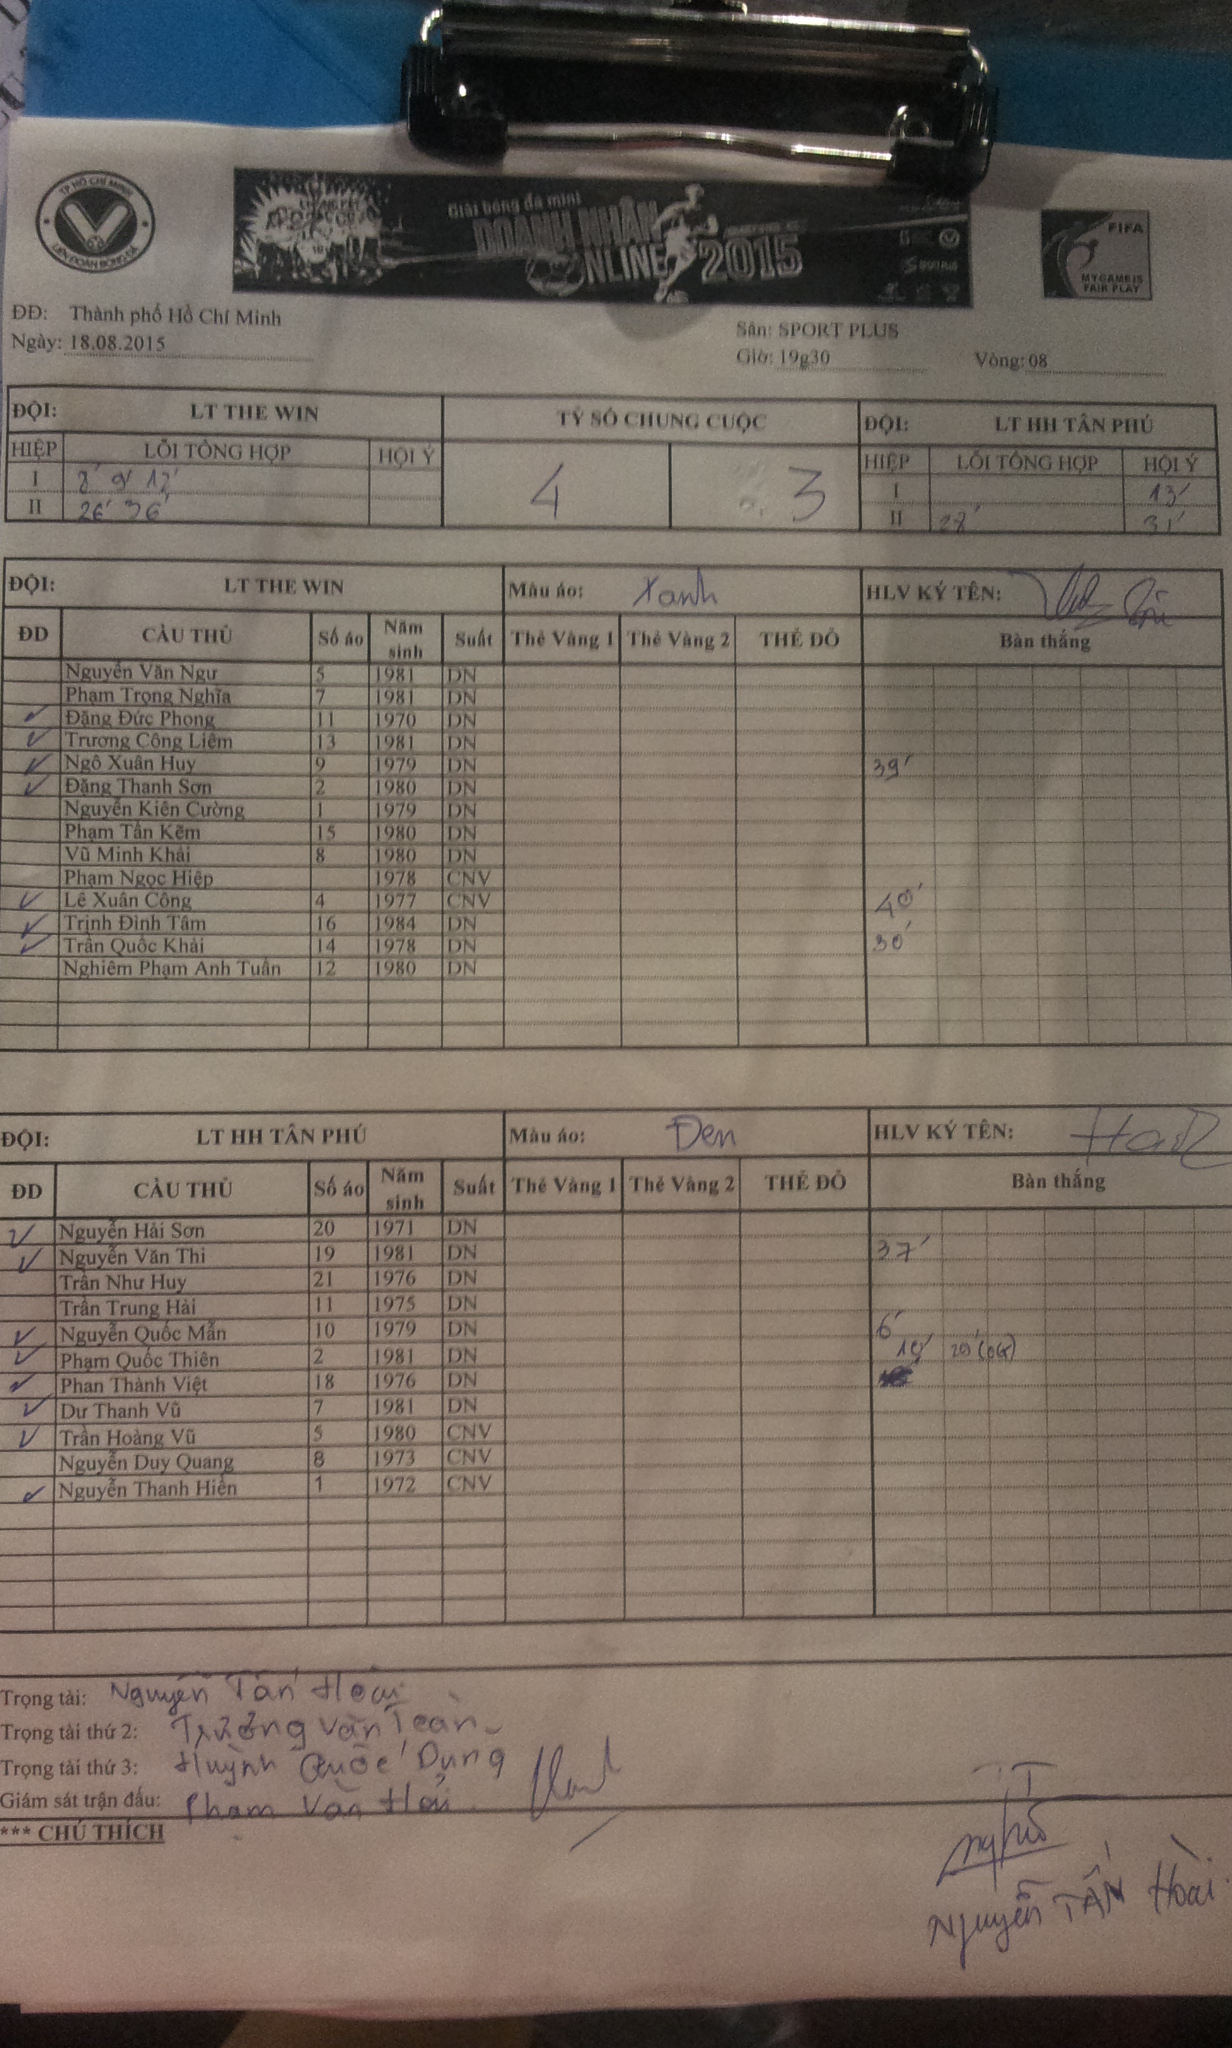 TP HỒ CHÍ MINH
LIÊN ĐOÀN BÓNG ĐÁ
Giải bóng đá mini
DOANH NHÂN
ONLINE 2015
FIFA
MY GAME IS
FAIR PLAY
ĐĐ: Thành phố Hồ Chí Minh
Sân: SPORT PLUS
Ngày: 18.08.2015
Giờ: 19g30 Vòng: 08
ĐỘI: LT THE WIN TỶ SỐ CHUNG CUỘC ĐỘI: LT HH TÂN PHÚ
HIỆP LỖI TỔNG HỢP HỘI Ý 4 3 HIỆP LỖI TỔNG HỢP HỘI Ý
I 8' 9' 12' I 13'
II 26' 36' II 28' 31'
ĐỘI: LT THE WIN Màu áo: Xanh HLV KÝ TÊN:
ĐD CẦU THỦ Số áo Năm sinh Suất Thẻ Vàng 1 Thẻ Vàng 2 THẺ ĐỎ Bàn thắng
Nguyễn Văn Ngư 5 1981 DN
Phạm Trọng Nghĩa 7 1981 DN
✓ Đặng Đức Phong 11 1970 DN
✓ Trương Công Liêm 13 1981 DN
✓ Ngô Xuân Huy 9 1979 DN 39'
✓ Đặng Thanh Sơn 2 1980 DN
Nguyễn Kiên Cường 1 1979 DN
Phạm Tấn Kẽm 15 1980 DN
Vũ Minh Khải 8 1980 DN
Phạm Ngọc Hiệp 1978 CNV
✓ Lê Xuân Công 4 1977 CNV 40'
✓ Trịnh Đình Tâm 16 1984 DN
✓ Trần Quốc Khải 14 1978 DN 30'
Nghiêm Phạm Anh Tuấn 12 1980 DN
ĐỘI: LT HH TÂN PHÚ Màu áo: Đen HLV KÝ TÊN:
ĐD CẦU THỦ Số áo Năm sinh Suất Thẻ Vàng 1 Thẻ Vàng 2 THẺ ĐỎ Bàn thắng
✓ Nguyễn Hải Sơn 20 1971 DN
✓ Nguyễn Văn Thi 19 1981 DN 37'
Trần Như Huy 21 1976 DN
Trần Trung Hải 11 1975 DN
✓ Nguyễn Quốc Mẫn 10 1979 DN 6'
✓ Phạm Quốc Thiên 2 1981 DN 19' 29' (OG)
✓ Phan Thành Việt 18 1976 DN
✓ Dư Thanh Vũ 7 1981 DN
✓ Trần Hoàng Vũ 5 1980 CNV
Nguyễn Duy Quang 8 1973 CNV
✓ Nguyễn Thanh Hiền 1 1972 CNV
Trọng tài: Nguyễn Tấn Hoài
Trọng tài thứ 2: Trương Văn Toàn
Trọng tài thứ 3: Huỳnh Quốc Dũng
Giám sát trận đấu: Phạm Văn Hải
*** CHÚ THÍCH
TT
Nguyễn TẤN Hoài